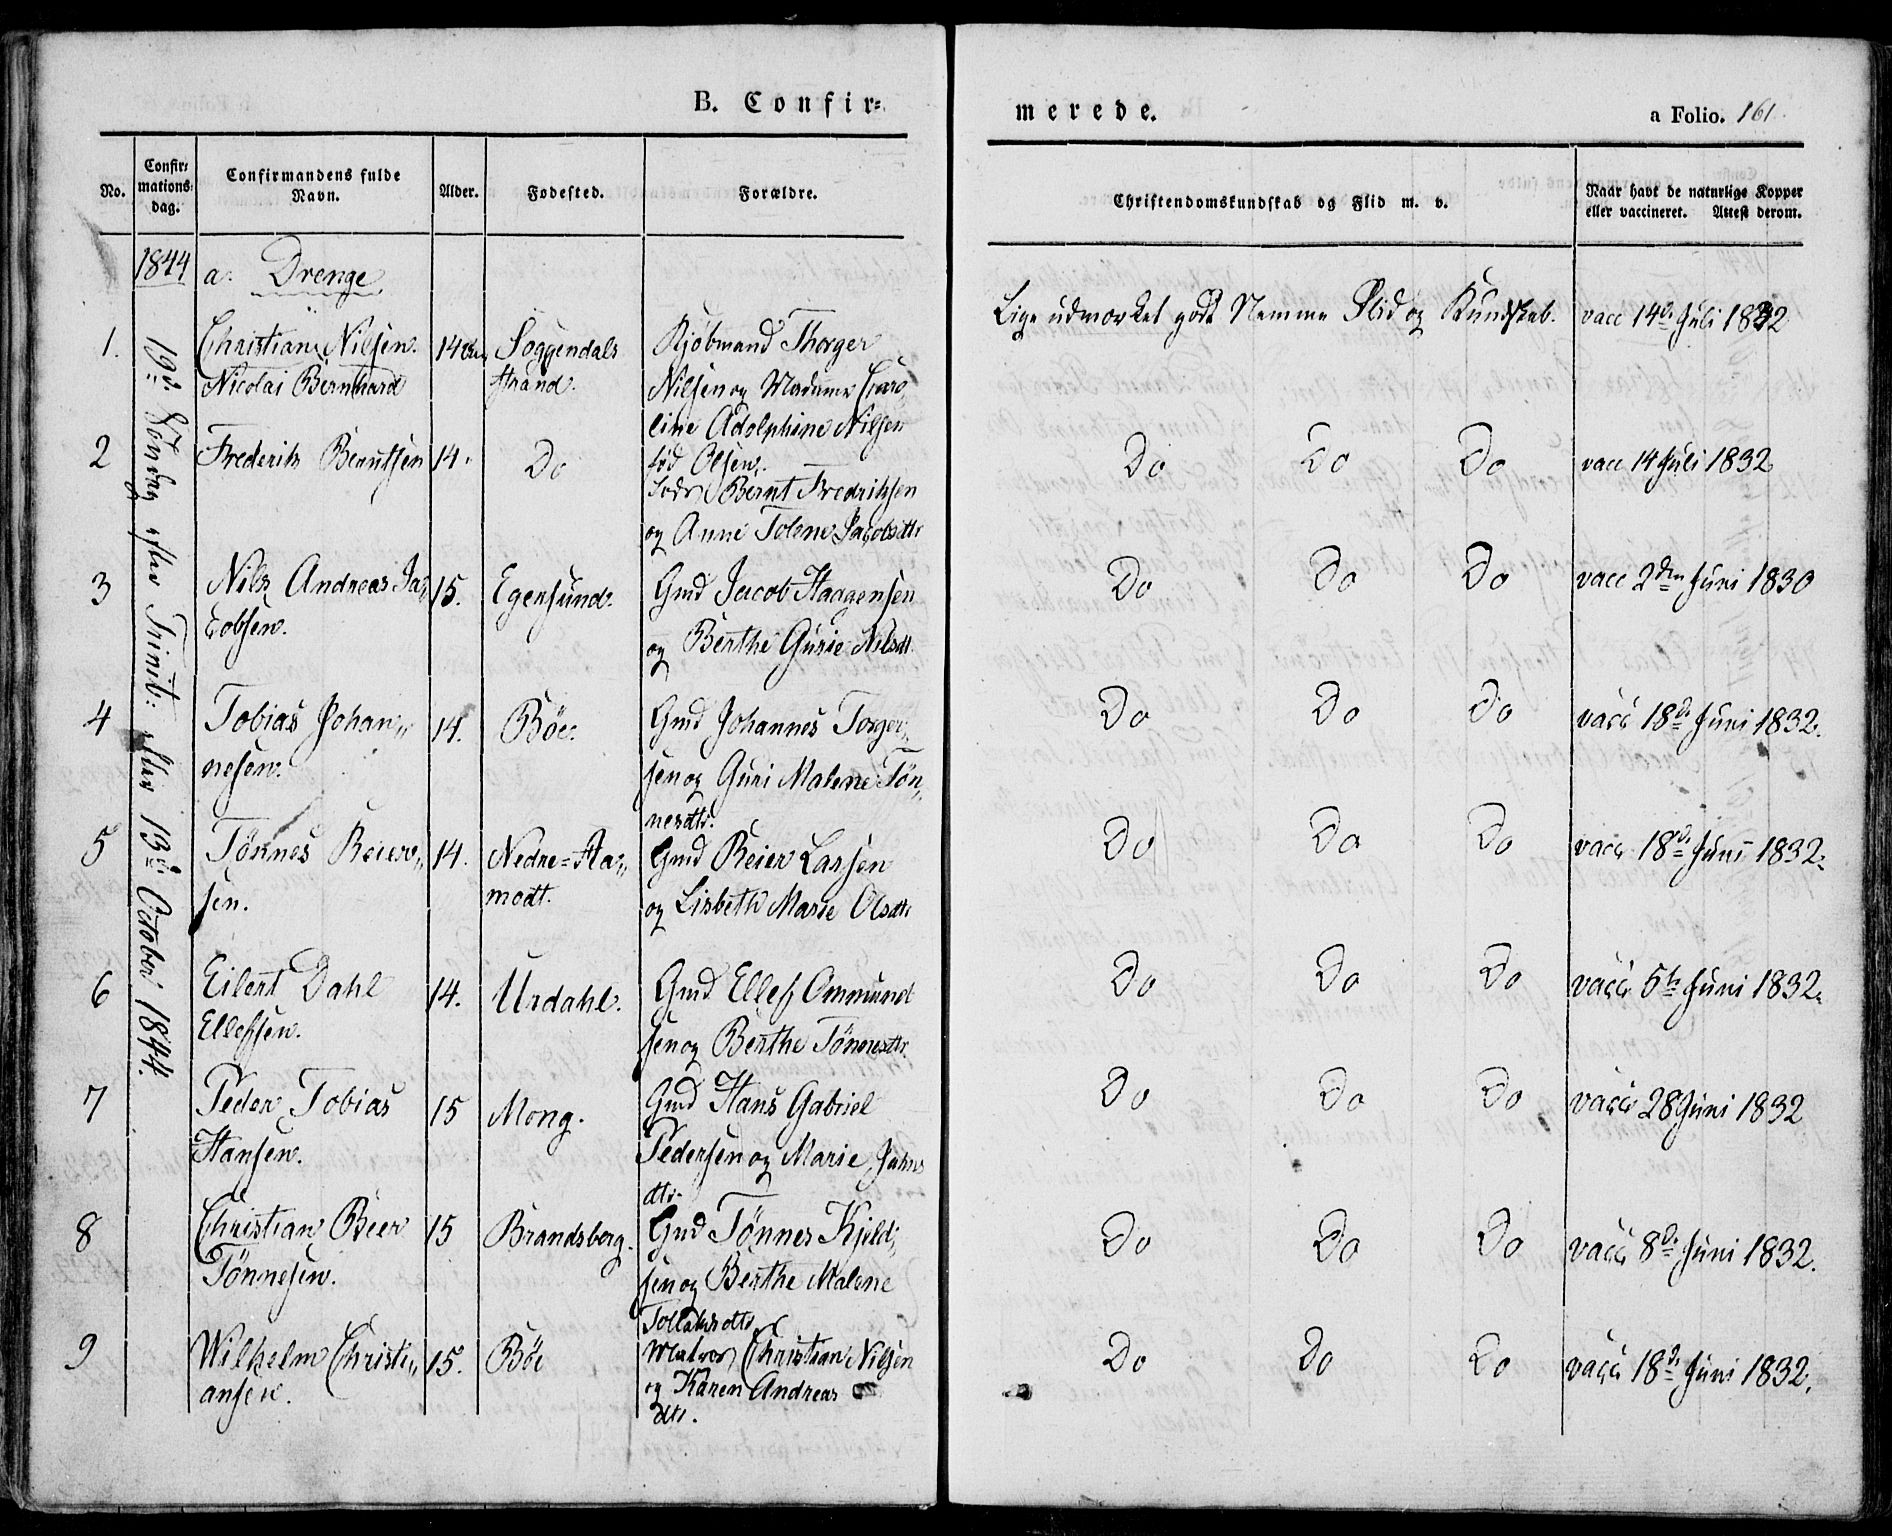 B. Confir=
merede.
a Folio. 161.
No.
Confir=
mations=
dag.
Confirmandens fulde
Navn.
Alder.
Fødested.
Forældre.
Christendomskundskab og Flid m. v.
Naar havt de naturlige Kopper
eller vaccineret. Attest derom.
1844
19de Søndag efter Trinit: eller 13de October 1844.
a. Drenge
1.
Christian Nilsen.
Nicolai Bernhard
14
Soggendals
strand.
Kjøbmand Thorger
Nilsen og Madame Caro,
line Adolphine Nilsen
fød Olsen.
Lige udmærket godt Nemme Flid og Kundskab.
vacc 14de Juli 1832
2
Frederik Berntsen
14.
Do
Bernt Fredriksen
og Anne Tolene Jacobsdtr
Do Do Do
vacc 14 Juli 1832
3
Nils Andreas Ja,,
cobsen.
15.
Egersund.
Gmd Jacob Haagensen
og Berthe Gurie Nilsdt.
Do Do Do
vacc 2den Juni 1830
4
Tobias Johan,,
nesen.
14.
Böe.
Gmd Johannes Torger,,
sen og Guri Malene Tön,,
nesdtr.
Do Do Do
vacc 18de Juni 1832.
5
Tönnes Reier,,
sen.
14.
Nedre=Aa,,
modt.
Gmd Reier Larsen
og Lisbeth Marie Olsdtr
Do Do Do
vacc 18de Juni 1832.
6
Eilert Dahl
Ellefsen.
14.
Urdahl.
Gmd Ellef Ommund
sen og Berthe Tönnesdtr.
Do Do Do
vacc 5te Juni 1832.
7
Peder Tobias
Hansen.
15
Mong.
Gmd Hans Gabriel
Pedersen og Marie Jahns
dtr.
Do Do Do
vacc 28 Juni 1832
8
Christian Beer
Tönnesen.
15
Brandsberg.
Gmd Tönnes Kjeld,,
sen og Berthe Malene
Tollaksdtr.
Do Do Do
vacc 8de Juni 1832.
9
Wilhelm Christi,,
ansen.
15.
Böe
Matros Christian Nilsen
og Karen Andreas
dtr.
Do Do Do
vacc 18de Juni 1832.